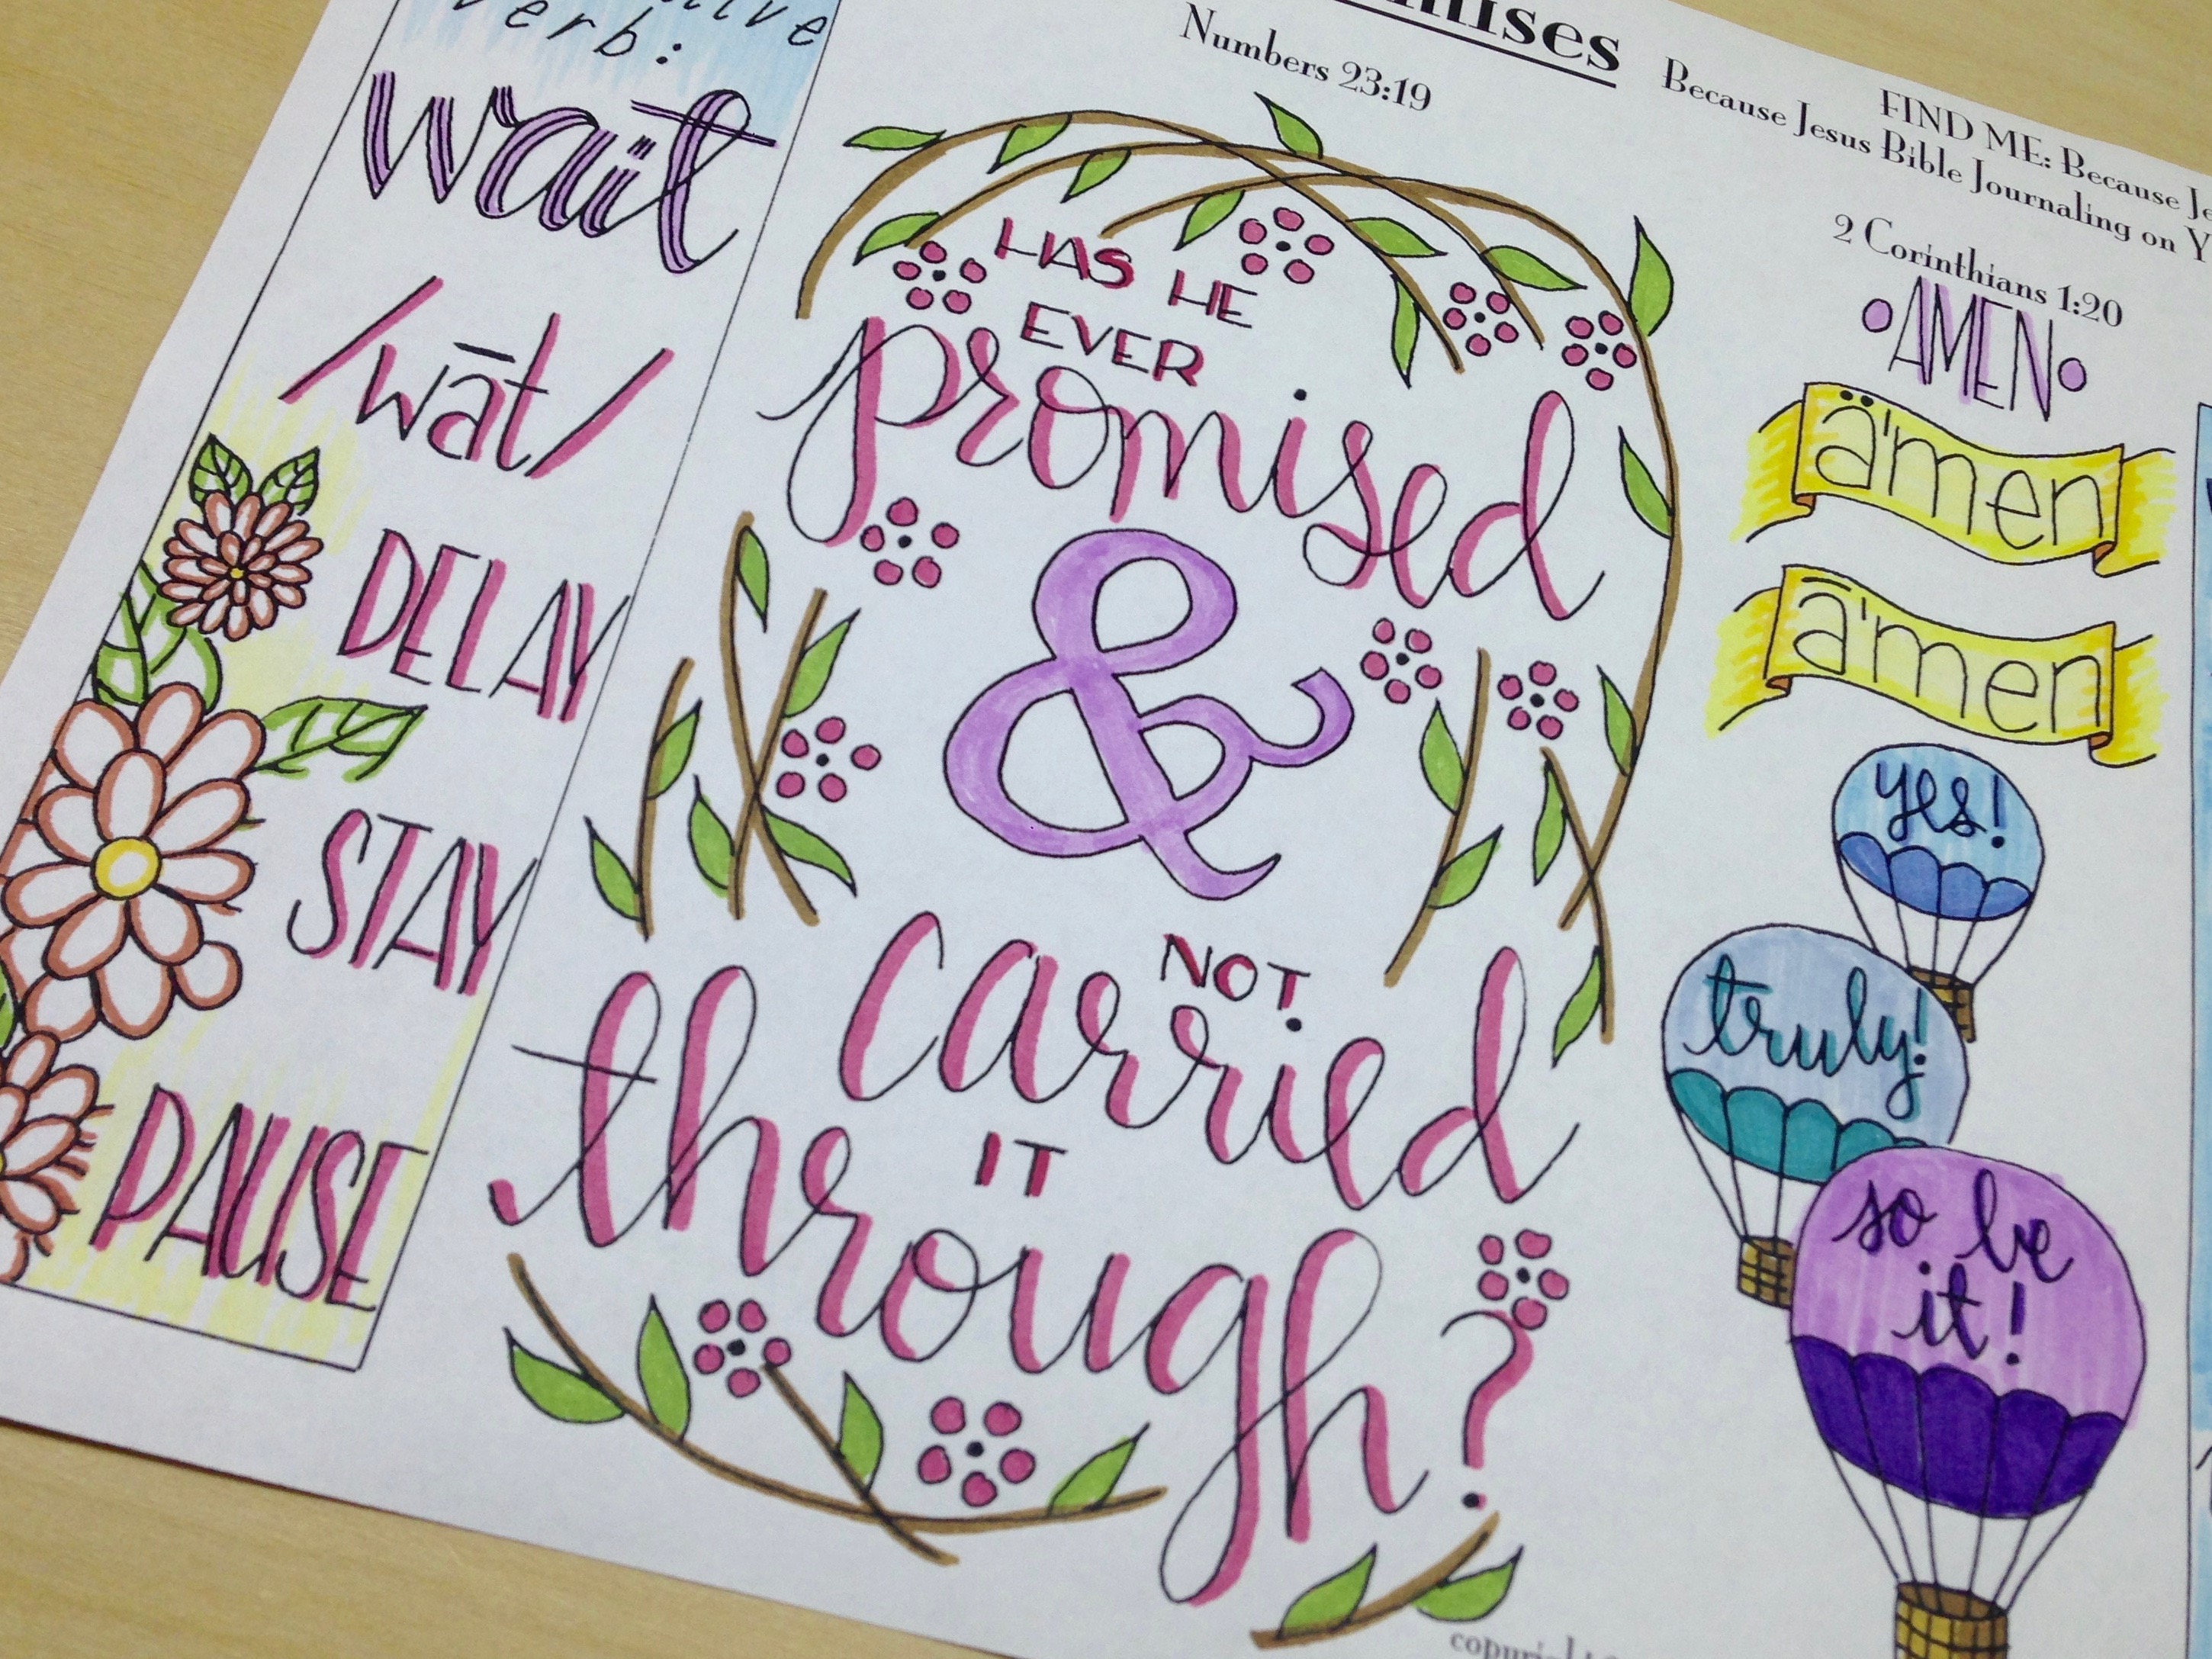 verb:
wait
/wāt/
DELAY
STAY
PAUSE
Numbers 23:19
HAS HE
EVER
promised
&
NOT
carried
IT
through?
FIND ME: Because
Because Jesus Bible Journaling on
2 Corinthians 1:20
•AMEN•
ä'men
ā'men
yes!
truly!
so be
it!